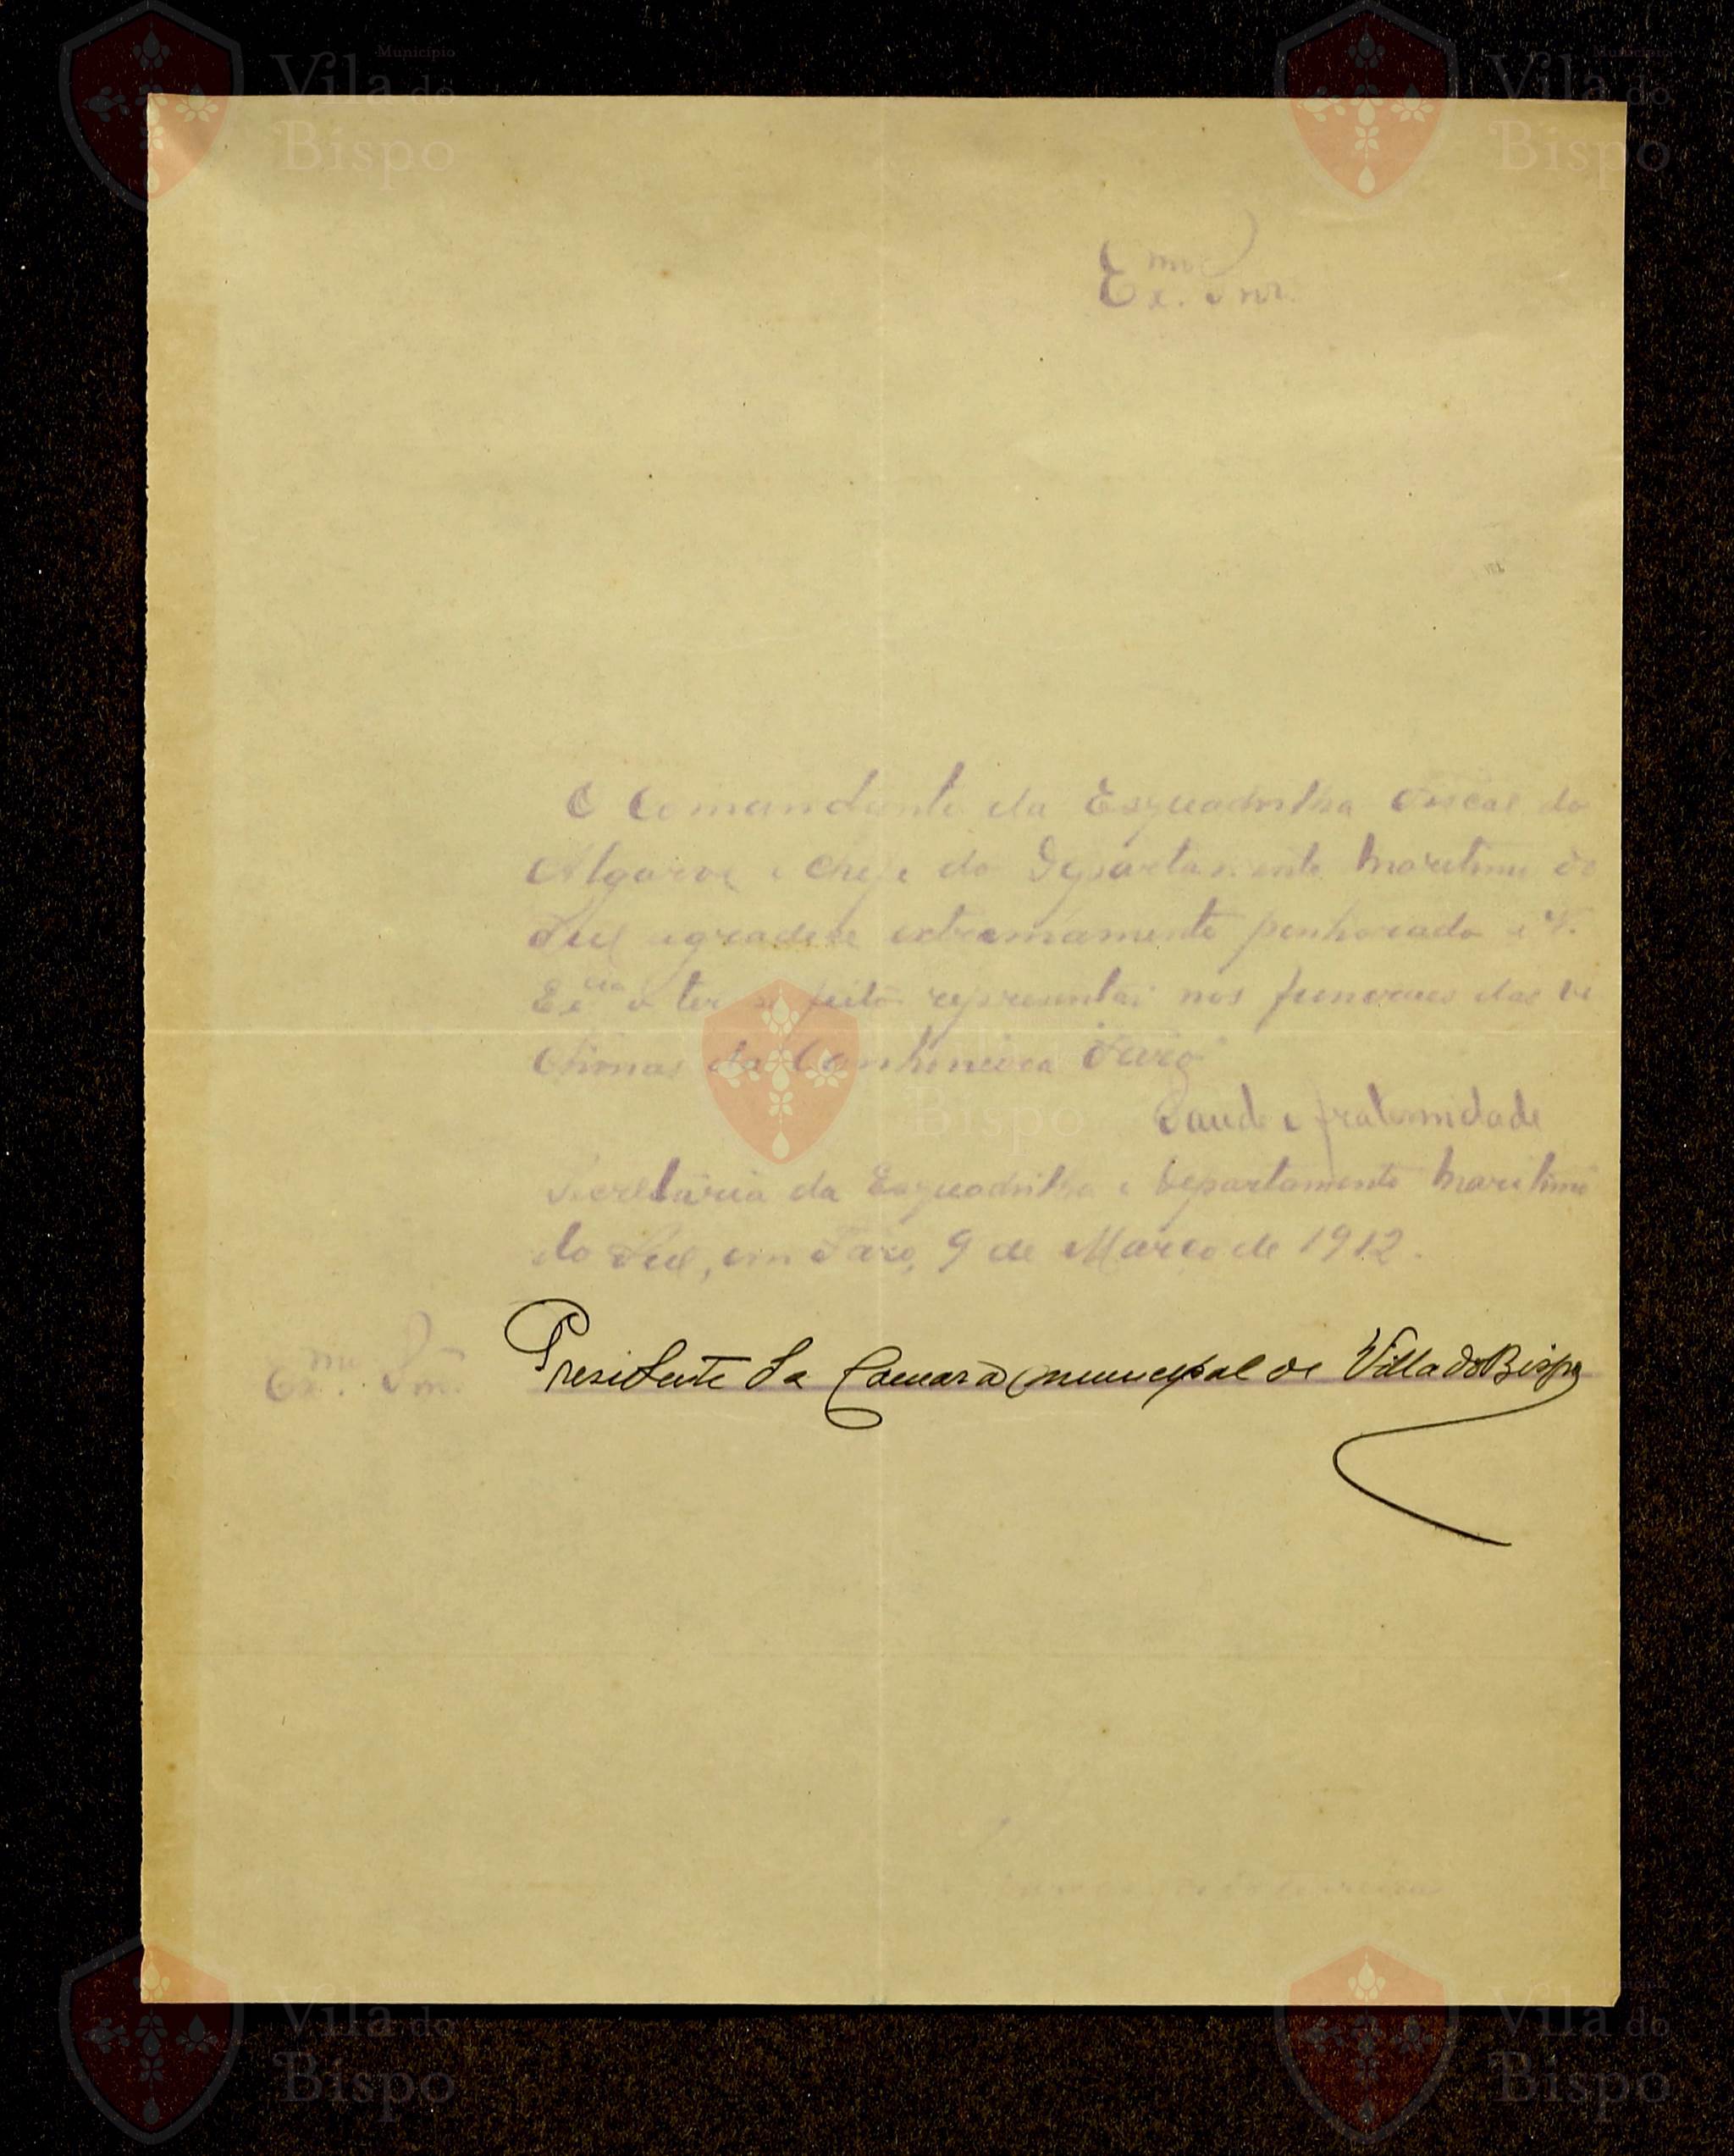 Ex.mo Snr.
O Comandante da Esquadrilha Fiscal do
Algarve e Chefe do Departamento Maritimo do
Sul agradece extremamente penhorado a V.
Ex.cia o ter se feito representar nos funeraes das vi
ctimas da Canhoneira "Faro"
Saude e fraternidade
Secretaria da Esquadrilha e Departamento Maritimo
do Sul, em Faro, 9 de Março de 1912.
Ex.mo Snr. Presidente da Camara Municipal de Villa do Bispo
Município
Vila do
Bispo